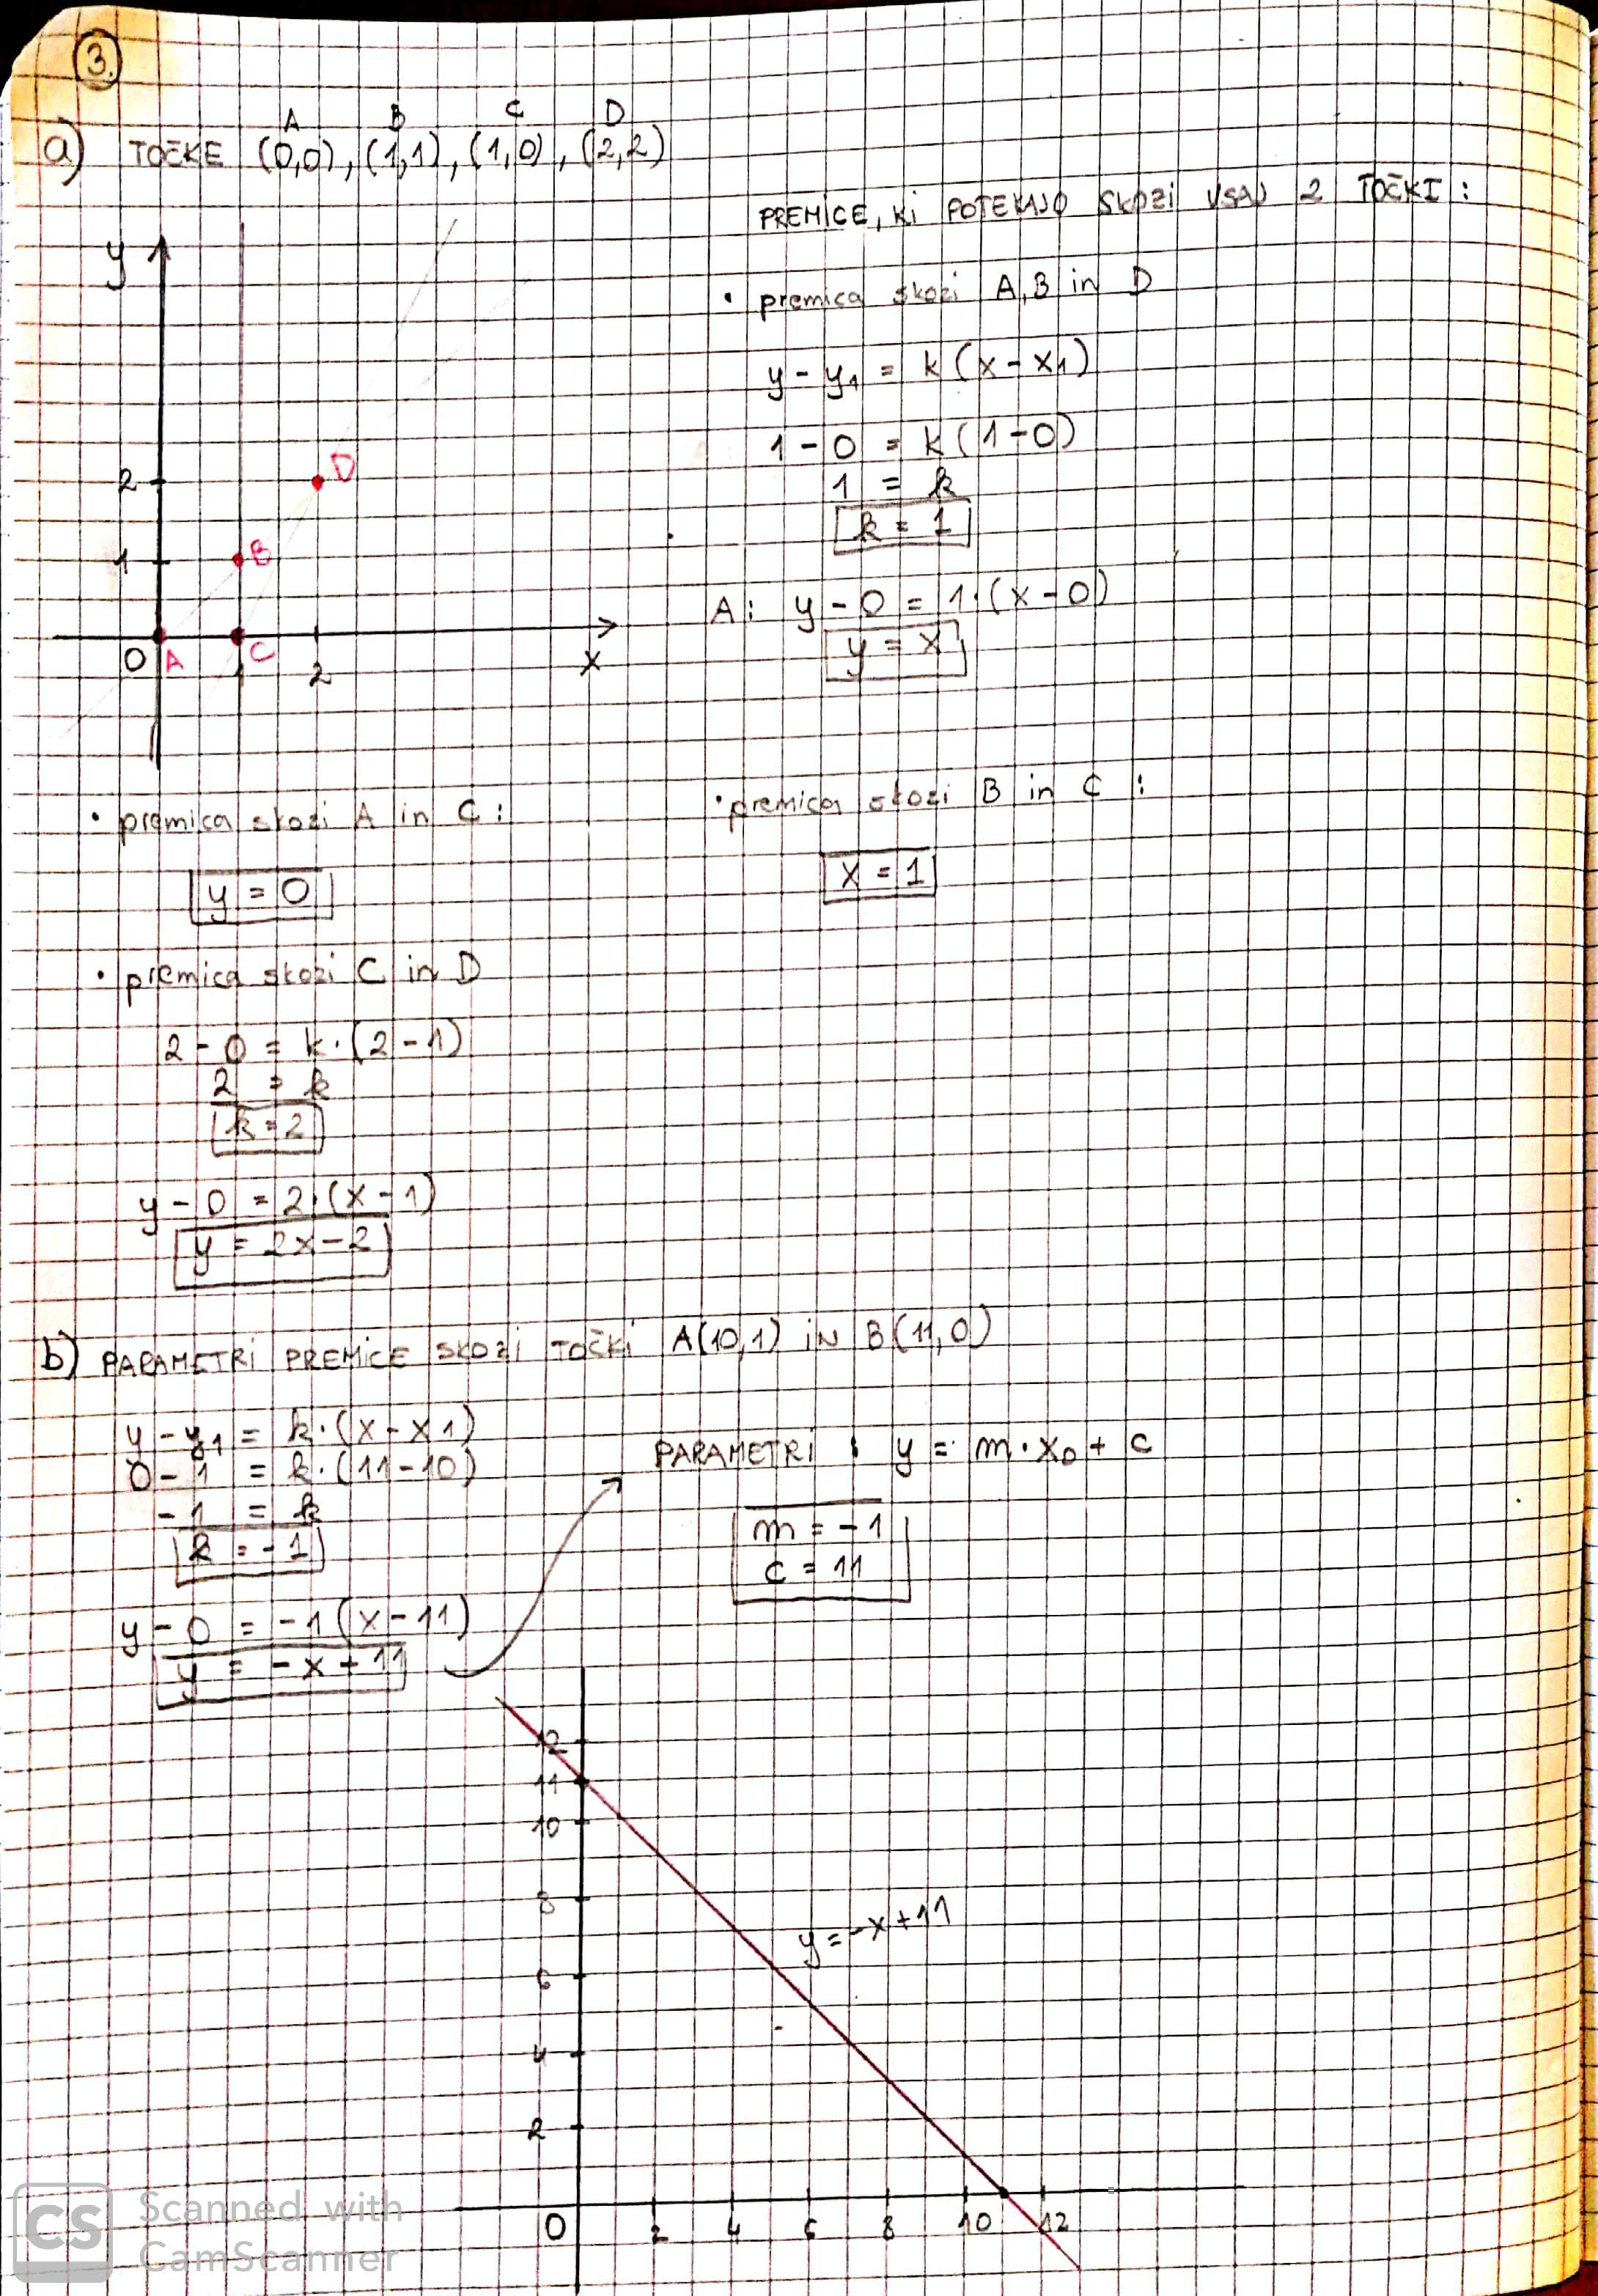 3.
A B C D
a) TOČKE (0,0), (1,1), (1,0), (2,2)
PREMICE, KI POTEKAJO SKOZI VSAJ 2 TOČKI :
y
2
1
0
1
2
x
A
B
C
D
• premica skozi A, B in D
y - y1 = k (x - x1)
1 - 0 = k (1 - 0)
1 = k
k = 1
A: y - 0 = 1·(x - 0)
y = x
• premica skozi A in C :
y = 0
• premica skozi B in C :
x = 1
• premica skozi C in D
2 - 0 = k·(2 - 1)
2 = k
k = 2
y - 0 = 2·(x - 1)
y = 2x - 2
b) PARAMETRI PREMICE SKOZI TOČKI A(10,1) IN B(11,0)
y - y1 = k·(x - x1)
0 - 1 = k·(11 - 10)
-1 = k
k = -1
y - 0 = -1 (x - 11)
y = -x + 11
PARAMETRI : y = m·x0 + c
m = -1
c = 11
12
11
10
8
6
4
2
y = -x + 11
0 2 4 6 8 10 12
CS Scanned with
CamScanner